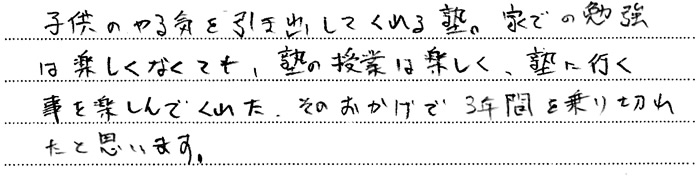 子供のやる気を引き出してくれる塾。家での勉強
は楽しくなくても、塾の授業は楽しく、塾に行く
事を楽しんでくれた。そのおかげで3年間を乗り切れ
たと思います。